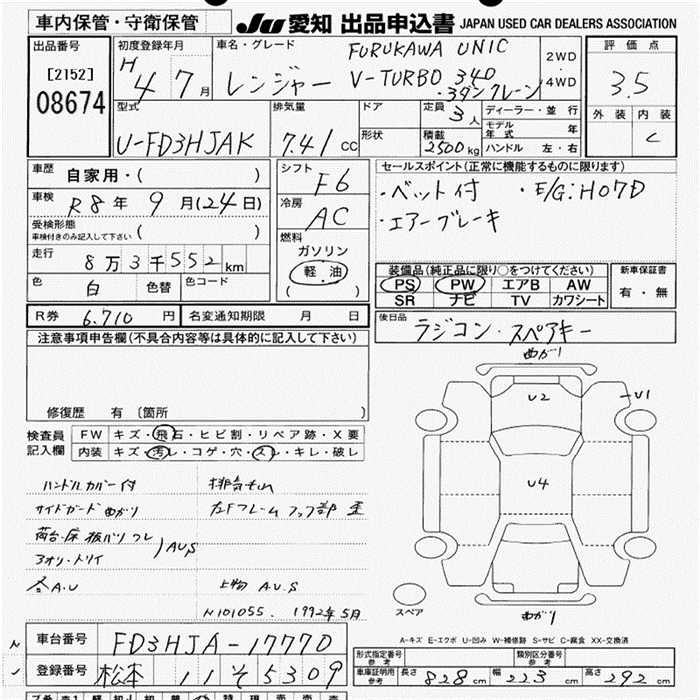 車内保管・守衛保管
JU 愛知 出品申込書 JAPAN USED CAR DEALERS ASSOCIATION
出品番号
[2152]
08674
初度登録年月
H 4 7 月
車名・グレード
FURUKAWA UNIC
レンジャー V-TURBO 340
・3ダンクレーン
2WD
・
4WD
評価点
3.5
外装 内装
C
型式
U-FD3HJAK
排気量
7.41 CC
ドア
形状
定員
3人
積載
2500kg
ディーラー・並行
モデル年式 年
ハンドル 左・右
車歴
自家用・( )
車検
R8年 9月(24日)
受検形態
車検付きのみ記入して下さい ( )
走行
8万3千552 km
色 白 色替 色コード
シフト
F6
冷房
AC
燃料
ガソリン
軽・油
( )
セールスポイント(正常に機能するものに限ります)
・ベット付 ・E/G:H07D
・エアーブレーキ
装備品(純正品に限り○をつけてください)
PS PW エアB AW
SR ナビ TV カワシート
新車保証書
有・無
R券 6.710 円 名変通知期限 月 日
後日品
ラジコン・スペアキー
注意事項申告欄(不具合内容等は具体的に記入して下さい)
修復歴 有 〔箇所 〕
検査員記入欄
FW キズ・飛石・ヒビ割・リペア跡・X要
内装 キズ・汚れ・コゲ・穴・スレ・キレ・破レ
ハンドルカバー付
サイドガード曲がり 左Fフレームフック部 歪
荷台・床 板バリワレ
アオリ・トリイ
AUS
各A.U 上物 A.U.S
N101055. 1992年5月
曲がり
U2
U1
U4
スペア
曲がり
A-キズ E-エクボ U-凹み W-補修跡 S-サビ C-腐食 XX-交換済
車台番号 FD3HJA-17770
登録番号 松本 11 そ 5309
型式指定番号
参考
類別区分番号
参考
車庫証明用
参考
長さ 828 cm 幅 223 cm 高さ 292 cm